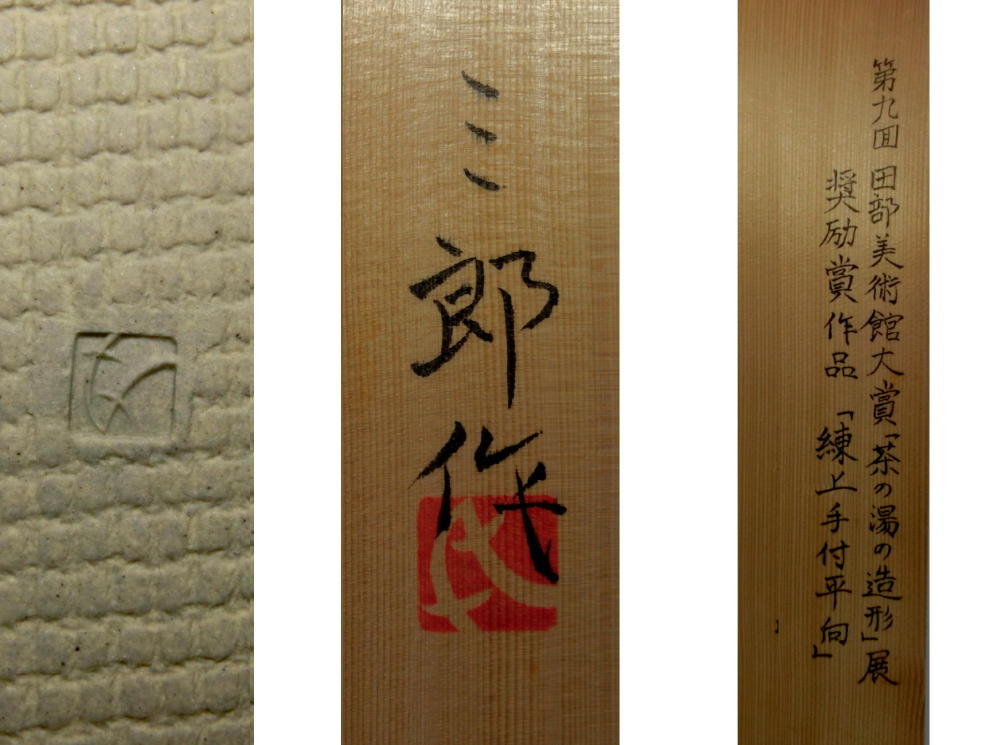 三郎代
第九回 田部美術館大賞「茶の湯の造形」展
奨励賞作品 「練上手付平向」